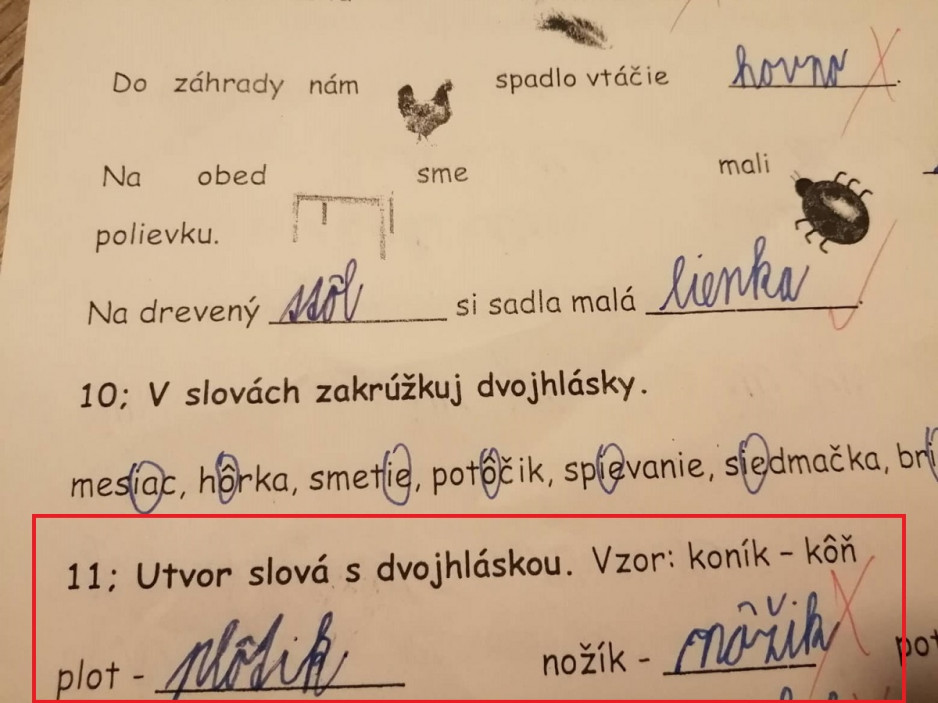 Do záhrady nám spadlo vtáčie hovno.
Na obed sme mali
polievku.
Na drevený stôl si sadla malá lienka.
10; V slovách zakrúžkuj dvojhlásky.
mesiac, hôrka, smetie, potôčik, spievanie, siedmačka, bri
11; Utvor slová s dvojhláskou. Vzor: koník - kôň
plot - plôtik nožík - nôžik pot